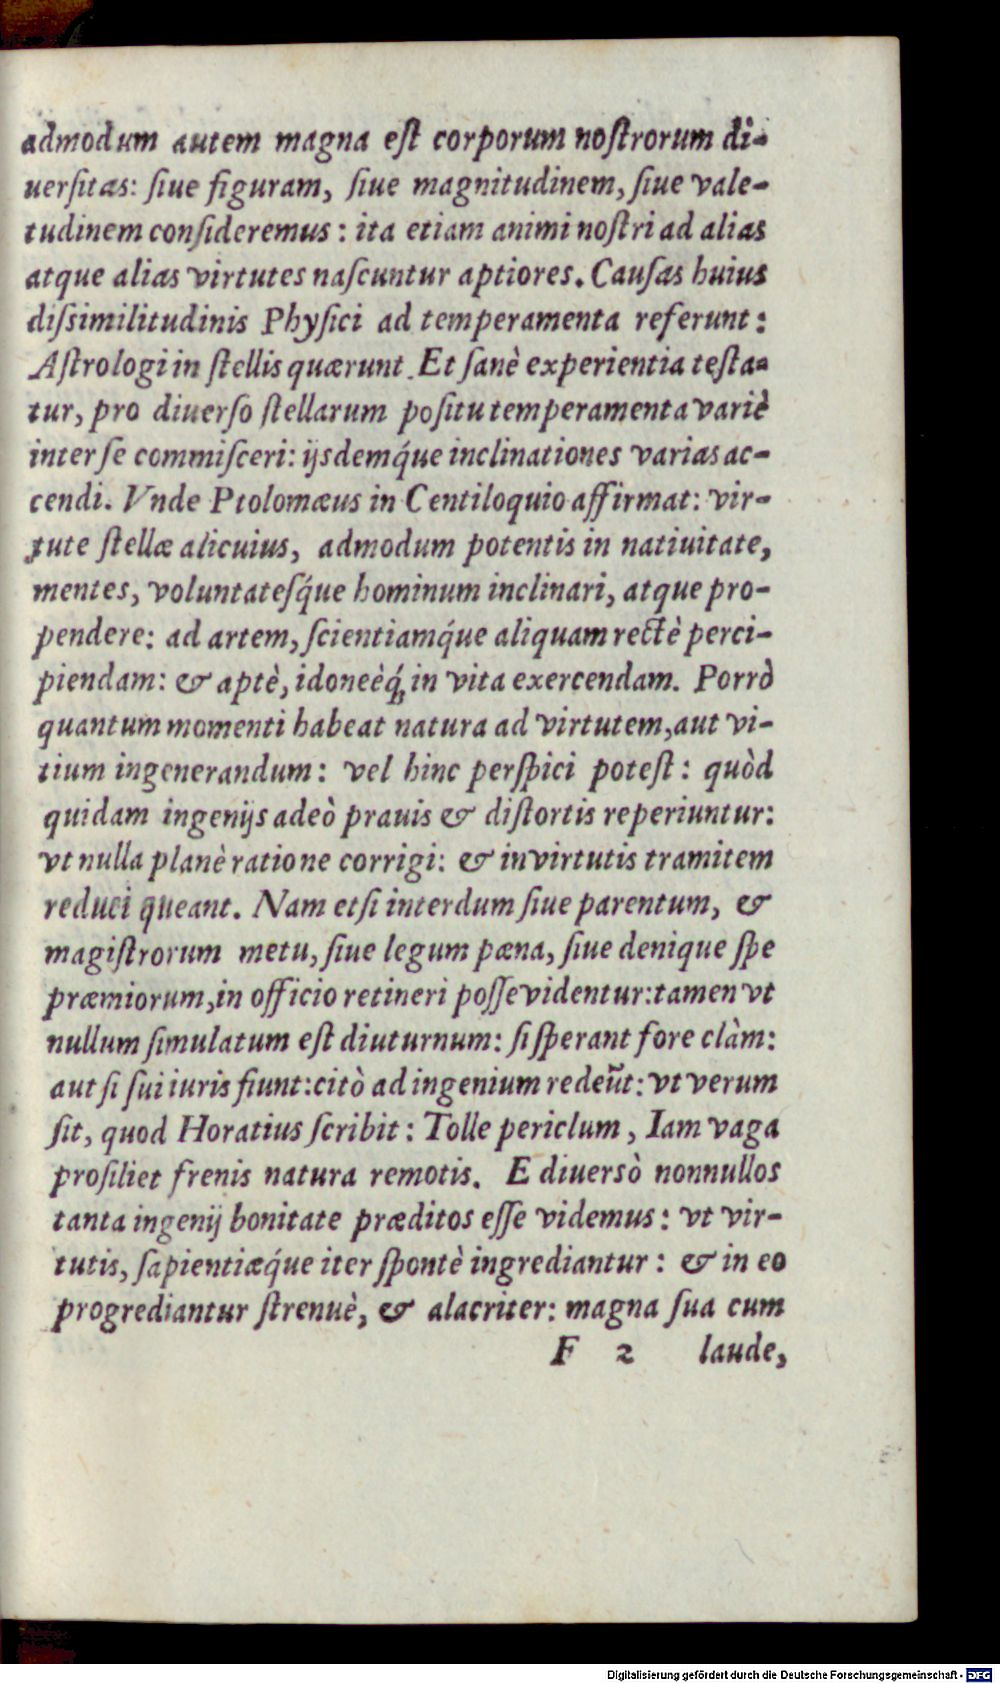 admodum autem magna eſt corporum noſtrorum di-
uerſitas: ſiue figuram, ſiue magnitudinem, ſiue vale-
tudinem conſideremus: ita etiam animi noſtri ad alias
atque alias virtutes naſcuntur aptiores. Cauſas huius
diſsimilitudinis Phyſici ad temperamenta referunt:
Aſtrologi in ſtellis quærunt. Et ſanè experientia teſta-
tur, pro diuerſo ſtellarum poſitu temperamenta variè
inter ſe commiſceri: ijsdemq́ue inclinationes varias ac-
cendi. Vnde Ptolomæus in Centiloquio affirmat: vir-
tute ſtellæ alicuius, admodum potentis in natiuitate,
mentes, voluntateſq́ue hominum inclinari, atque pro-
pendere: ad artem, ſcientiamq́ue aliquam rectè perci-
piendam: & aptè, idoneèq́; in vita exercendam. Porrò
quantum momenti habeat natura ad virtutem, aut vi-
tium ingenerandum: vel hinc perſpici poteſt: quòd
quidam ingenijs adeò prauis & diſtortis reperiuntur:
vt nulla planè ratione corrigi: & in virtutis tramitem
reduci queant. Nam etſi interdum ſiue parentum, &
magiſtrorum metu, ſiue legum pæna, ſiue denique ſpe
præmiorum, in officio retineri poſſe videntur: tamen vt
nullum ſimulatum eſt diuturnum: ſi ſperant fore clàm:
aut ſi ſui iuris fiunt: citò ad ingenium redeũt: vt verum
ſit, quod Horatius ſcribit: Tolle periclum, Iam vaga
proſiliet frenis natura remotis. E diuersò nonnullos
tanta ingenij bonitate præditos eſſe videmus: vt vir-
tutis, ſapientiæq́ue iter ſpontè ingrediantur: & in eo
progrediantur ſtrenuè, & alacriter: magna ſua cum
F 2 laude,
Digitalisierung gefördert durch die Deutsche Forschungsgemeinschaft - DFG